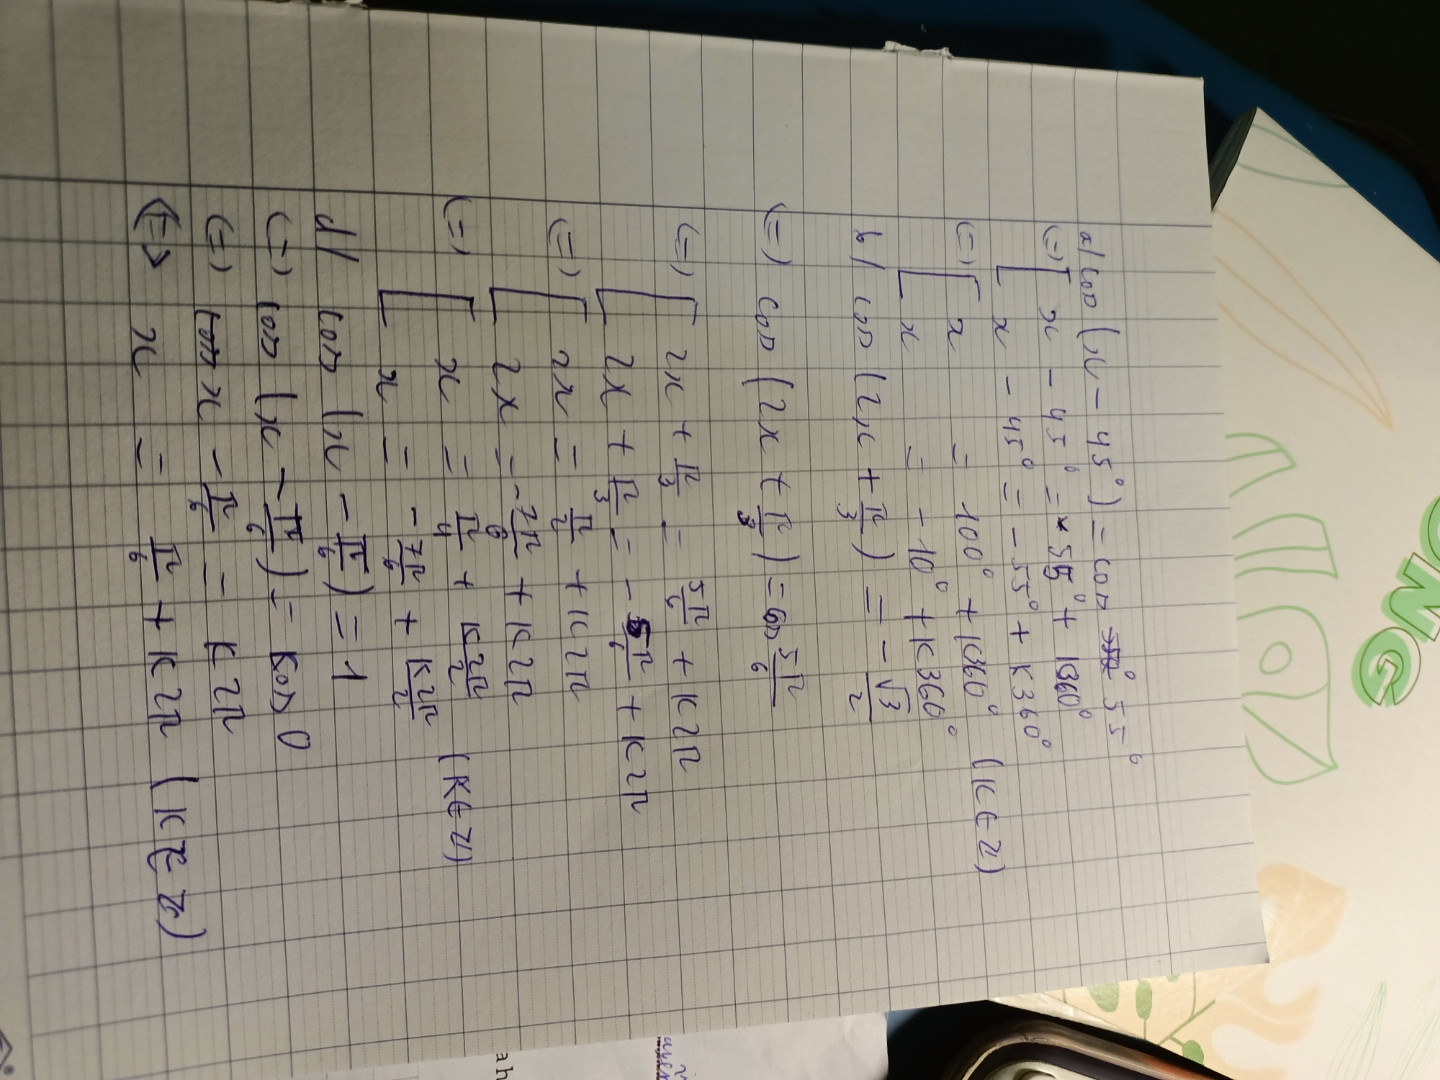 a/ cos (x - 45°) = cos 55°
(=) [ x - 45° = 55° + k360°
x - 45° = - 55° + k360°
(=) [ x = 100° + k360° (k∈Z)
x = - 10° + k360°
b/ cos (2x + π/3) = - √3/2
(=) cos (2x + π/3) = cos 5π/6
(=) [ 2x + π/3 = 5π/6 + k2π
2x + π/3 = - 5π/6 + k2π
(=) [ 2x = π/2 + k2π
2x = - 7π/6 + k2π
(=) [ x = π/4 + k2π/2 (k∈Z)
x = - 7π/6 + k2π/2
d/ cos (x - π/6) = 1
(=) cos (x - π/6) = cos 0
(=) cos x - π/6 = k2π
(=) x = π/6 + k2π (k∈Z)
ONG